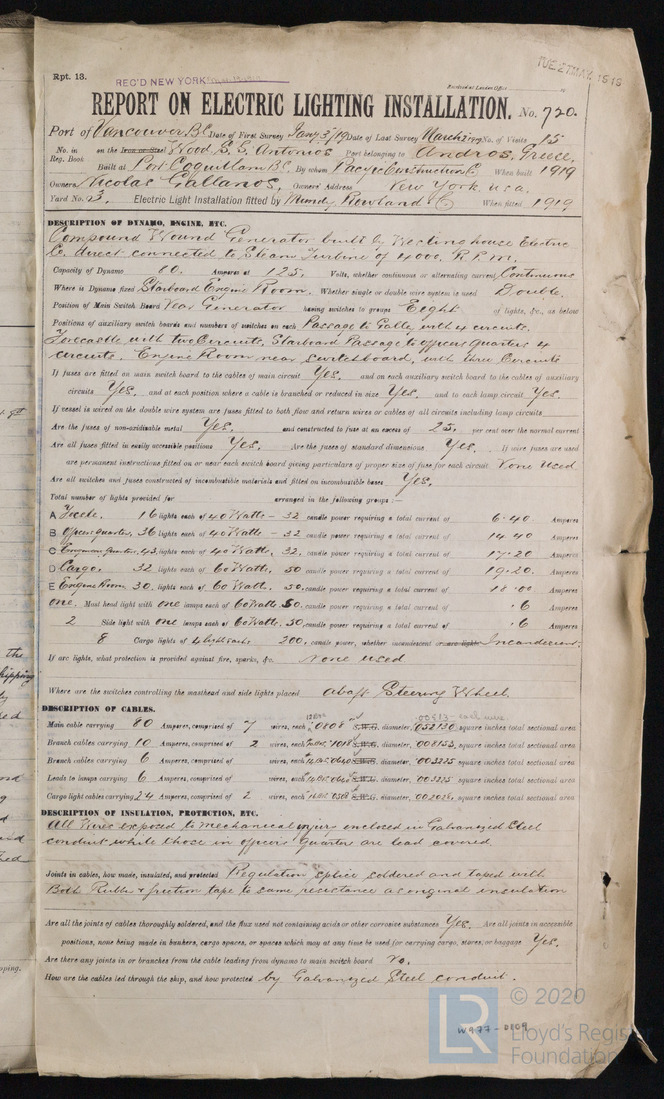 Rpt. 13.
REC'D NEW YORK
Received at London Office
TUE 27 MAY 1919
REPORT ON ELECTRIC LIGHTING INSTALLATION. No. 720.
Port of Vancouver B.C. Date of First Survey Jany 3/19 Date of Last Survey March No. of Visits 15
No. in Reg. Book on the Iron or Steel Wood S.S. Antonios Port belonging to Andros, Greece,
Built at Port Coquitlam B.C. By whom Pacific Construction Co When built 1919
Owners Nicolas Gallanos, Owners' Address New York. U.S.A.
Yard No. 3. Electric Light Installation fitted by Mundy Rowland Co When fitted 1919
DESCRIPTION OF DYNAMO, ENGINE, ETC.
Compound Wound Generator built by Westinghouse Electric
Co. direct connected to Steam Turbine of 4000. R.P.M.
Capacity of Dynamo 80. Amperes at 125. Volts, whether continuous or alternating current Continuous
Where is Dynamo fixed Starboard Engine Room. Whether single or double wire system is used Double.
Position of Main Switch Board Near Generator having switches to groups Eight of lights, &c., as below
Positions of auxiliary switch boards and numbers of switches on each Passage to Galley with 4 circuits.
Forecastle with two Circuits, Starboard Passage to officers quarters 4
circuits. Engine Room near switchboard, with three Circuits
If fuses are fitted on main switch board to the cables of main circuit Yes. and on each auxiliary switch board to the cables of auxiliary
circuits Yes. and at each position where a cable is branched or reduced in size Yes. and to each lamp circuit Yes.
If vessel is wired on the double wire system are fuses fitted to both flow and return wires or cables of all circuits including lamp circuits
Are the fuses of non-oxidizable metal Yes. and constructed to fuse at an excess of 25. per cent over the normal current
Are all fuses fitted in easily accessible positions Yes. Are the fuses of standard dimensions Yes. If wire fuses are used
are permanent instructions fitted on or near each switch board giving particulars of proper size of fuse for each circuit None used.
Are all switches and fuses constructed of incombustible materials and fitted on incombustible bases Yes.
Total number of lights provided for arranged in the following groups :—
A 16 lights each of 40 Watts - 32 candle power requiring a total current of 6.40 Amperes
B Officers quarters, 36 lights each of 40 Watts - 32 candle power requiring a total current of 14.40 Amperes
C Quarters, 43 lights each of 40 Watts. 32. candle power requiring a total current of 17.20 Amperes
D Cargo. 32 lights each of 60 Watts, 50 candle power requiring a total current of 19.20. Amperes
E Engine Room 30. lights each of 60 Watts. 50. candle power requiring a total current of 18.00 Amperes
one. Mast head light with one lamps each of 60 Watts 50. candle power requiring a total current of .6 Amperes
2 Side light with one lamps each of 60 Watts. 50. candle power requiring a total current of .6 Amperes
8 Cargo lights of 4 lights each 200. candle power, whether incandescent or arc lights Incandescent.
If arc lights, what protection is provided against fire, sparks, &c. none used
Where are the switches controlling the masthead and side lights placed abaft Steering Wheel
DESCRIPTION OF CABLES.
Main cable carrying 80 Amperes, comprised of 7 wires, each .0808 S.W.G. diameter, .052130 square inches total sectional area
Branch cables carrying 10 Amperes, comprised of 2 wires, each S.W.G. diameter, .008155 square inches total sectional area
Branch cables carrying 6 Amperes, comprised of wires, each S.W.G. diameter, .003225 square inches total sectional area
Leads to lamps carrying 6 Amperes, comprised of wires, each S.W.G. diameter, .003225 square inches total sectional area
Cargo light cables carrying 24 Amperes, comprised of 2 wires, each S.W.G. diameter, square inches total sectional area
DESCRIPTION OF INSULATION, PROTECTION, ETC.
All Wires exposed to mechanical injury enclosed in Galvanized Steel
conduit while those in officers quarters are lead covered.
Joints in cables, how made, insulated, and protected Regulation splice soldered and taped with
Both Rubber & friction tape to same resistance as original insulation
Are all the joints of cables thoroughly soldered, and the flux used not containing acids or other corrosive substances Yes. Are all joints in accessible
positions, none being made in bunkers, cargo spaces, or spaces which may at any time be used for carrying cargo, stores, or baggage Yes.
Are there any joints in or branches from the cable leading from dynamo to main switch board No.
How are the cables led through the ship, and how protected by Galvanized Steel conduit.
W977-0109
LR
© 2020
Lloyd's Register
Foundation